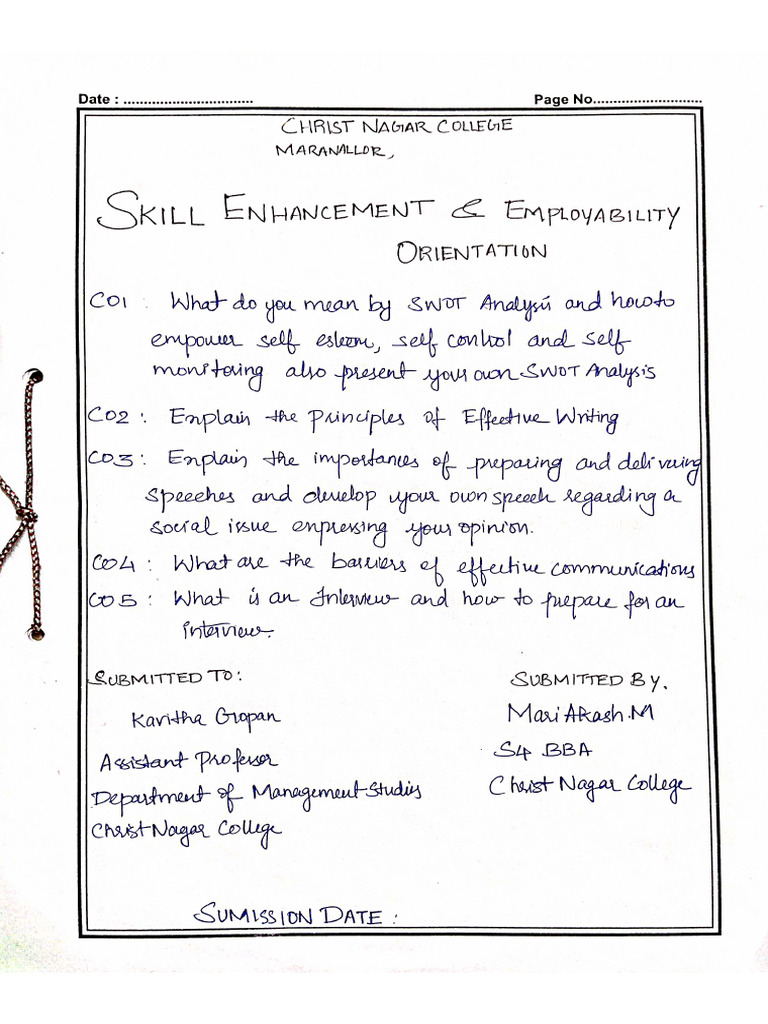 Date : ................................ Page No...........................
CHRIST NAGAR COLLEGE
MARANALLOR,
SKILL ENHANCEMENT & EMPLOYABILITY
ORIENTATION
CO1 : What do you mean by SWOT Analysis and how to
empower self esteem, self control and self
monitoring also present your own SWOT Analysis
CO2 : Explain the Principles of Effective Writing
CO3 : Explain the importances of preparing and delivering
speeches and develop your own speech regarding a
social issue expressing your opinion.
CO4 : What are the barriers of effective communications
CO5 : What is an Interview and how to prepare for an
interview.
SUBMITTED TO: SUBMITTED BY.
Kavitha Gopan Mari Akash.M
Assistant Professor S4 BBA
Department of Management Studies Christ Nagar College
Christ Nagar College
SUMISSION DATE :